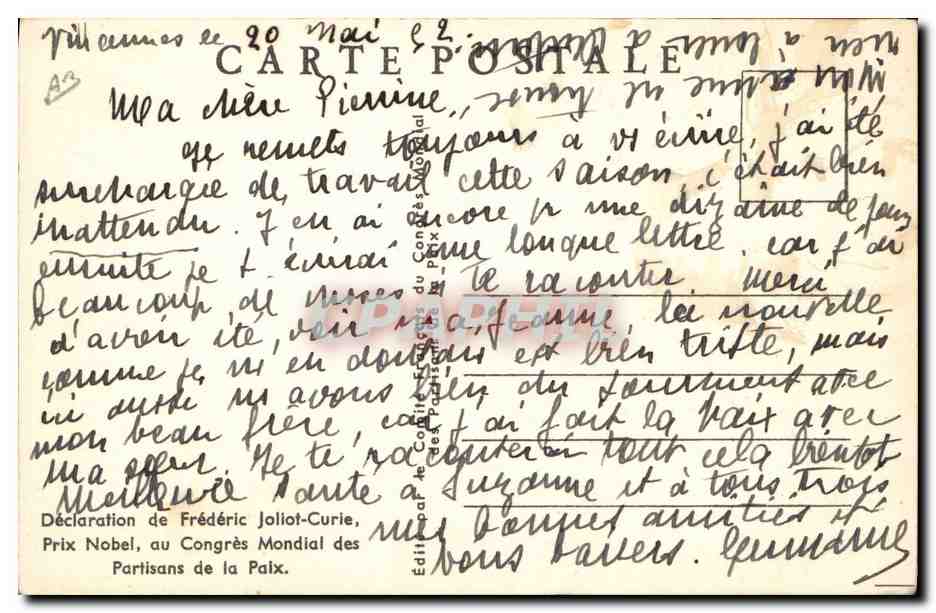 le 20 Mai 52.
CARTE POSTALE
Ma chère Pierrine,
Je remets toujours à t'écrire, j'ai été
surchargée de travail cette saison, c'était bien
inattendu. J'en ai encore pr une dizaine de jours
ensuite je t'écrirai une longue lettre car j'ai
beaucoup de choses à te raconter. Merci
d'avoir été voir ma Jeanne, la nouvelle
comme je m'en doutais est bien triste, mais
ici aussi ns avons bien du tourment avec
mon beau frère, car j'ai fait la paix avec
ma sœur. Je te raconterai tout cela bientôt
Meilleure santé à Suzanne et à tous trois
mes bonnes amitiés et
bons baisers. Germaine
rien à louer à
on ne trouve
Déclaration de Frédéric Joliot-Curie,
Prix Nobel, au Congrès Mondial des
Partisans de la Paix.
Edité par le Comité Français du Congrès Mondial
des Partisans de la Paix
CPARAMA